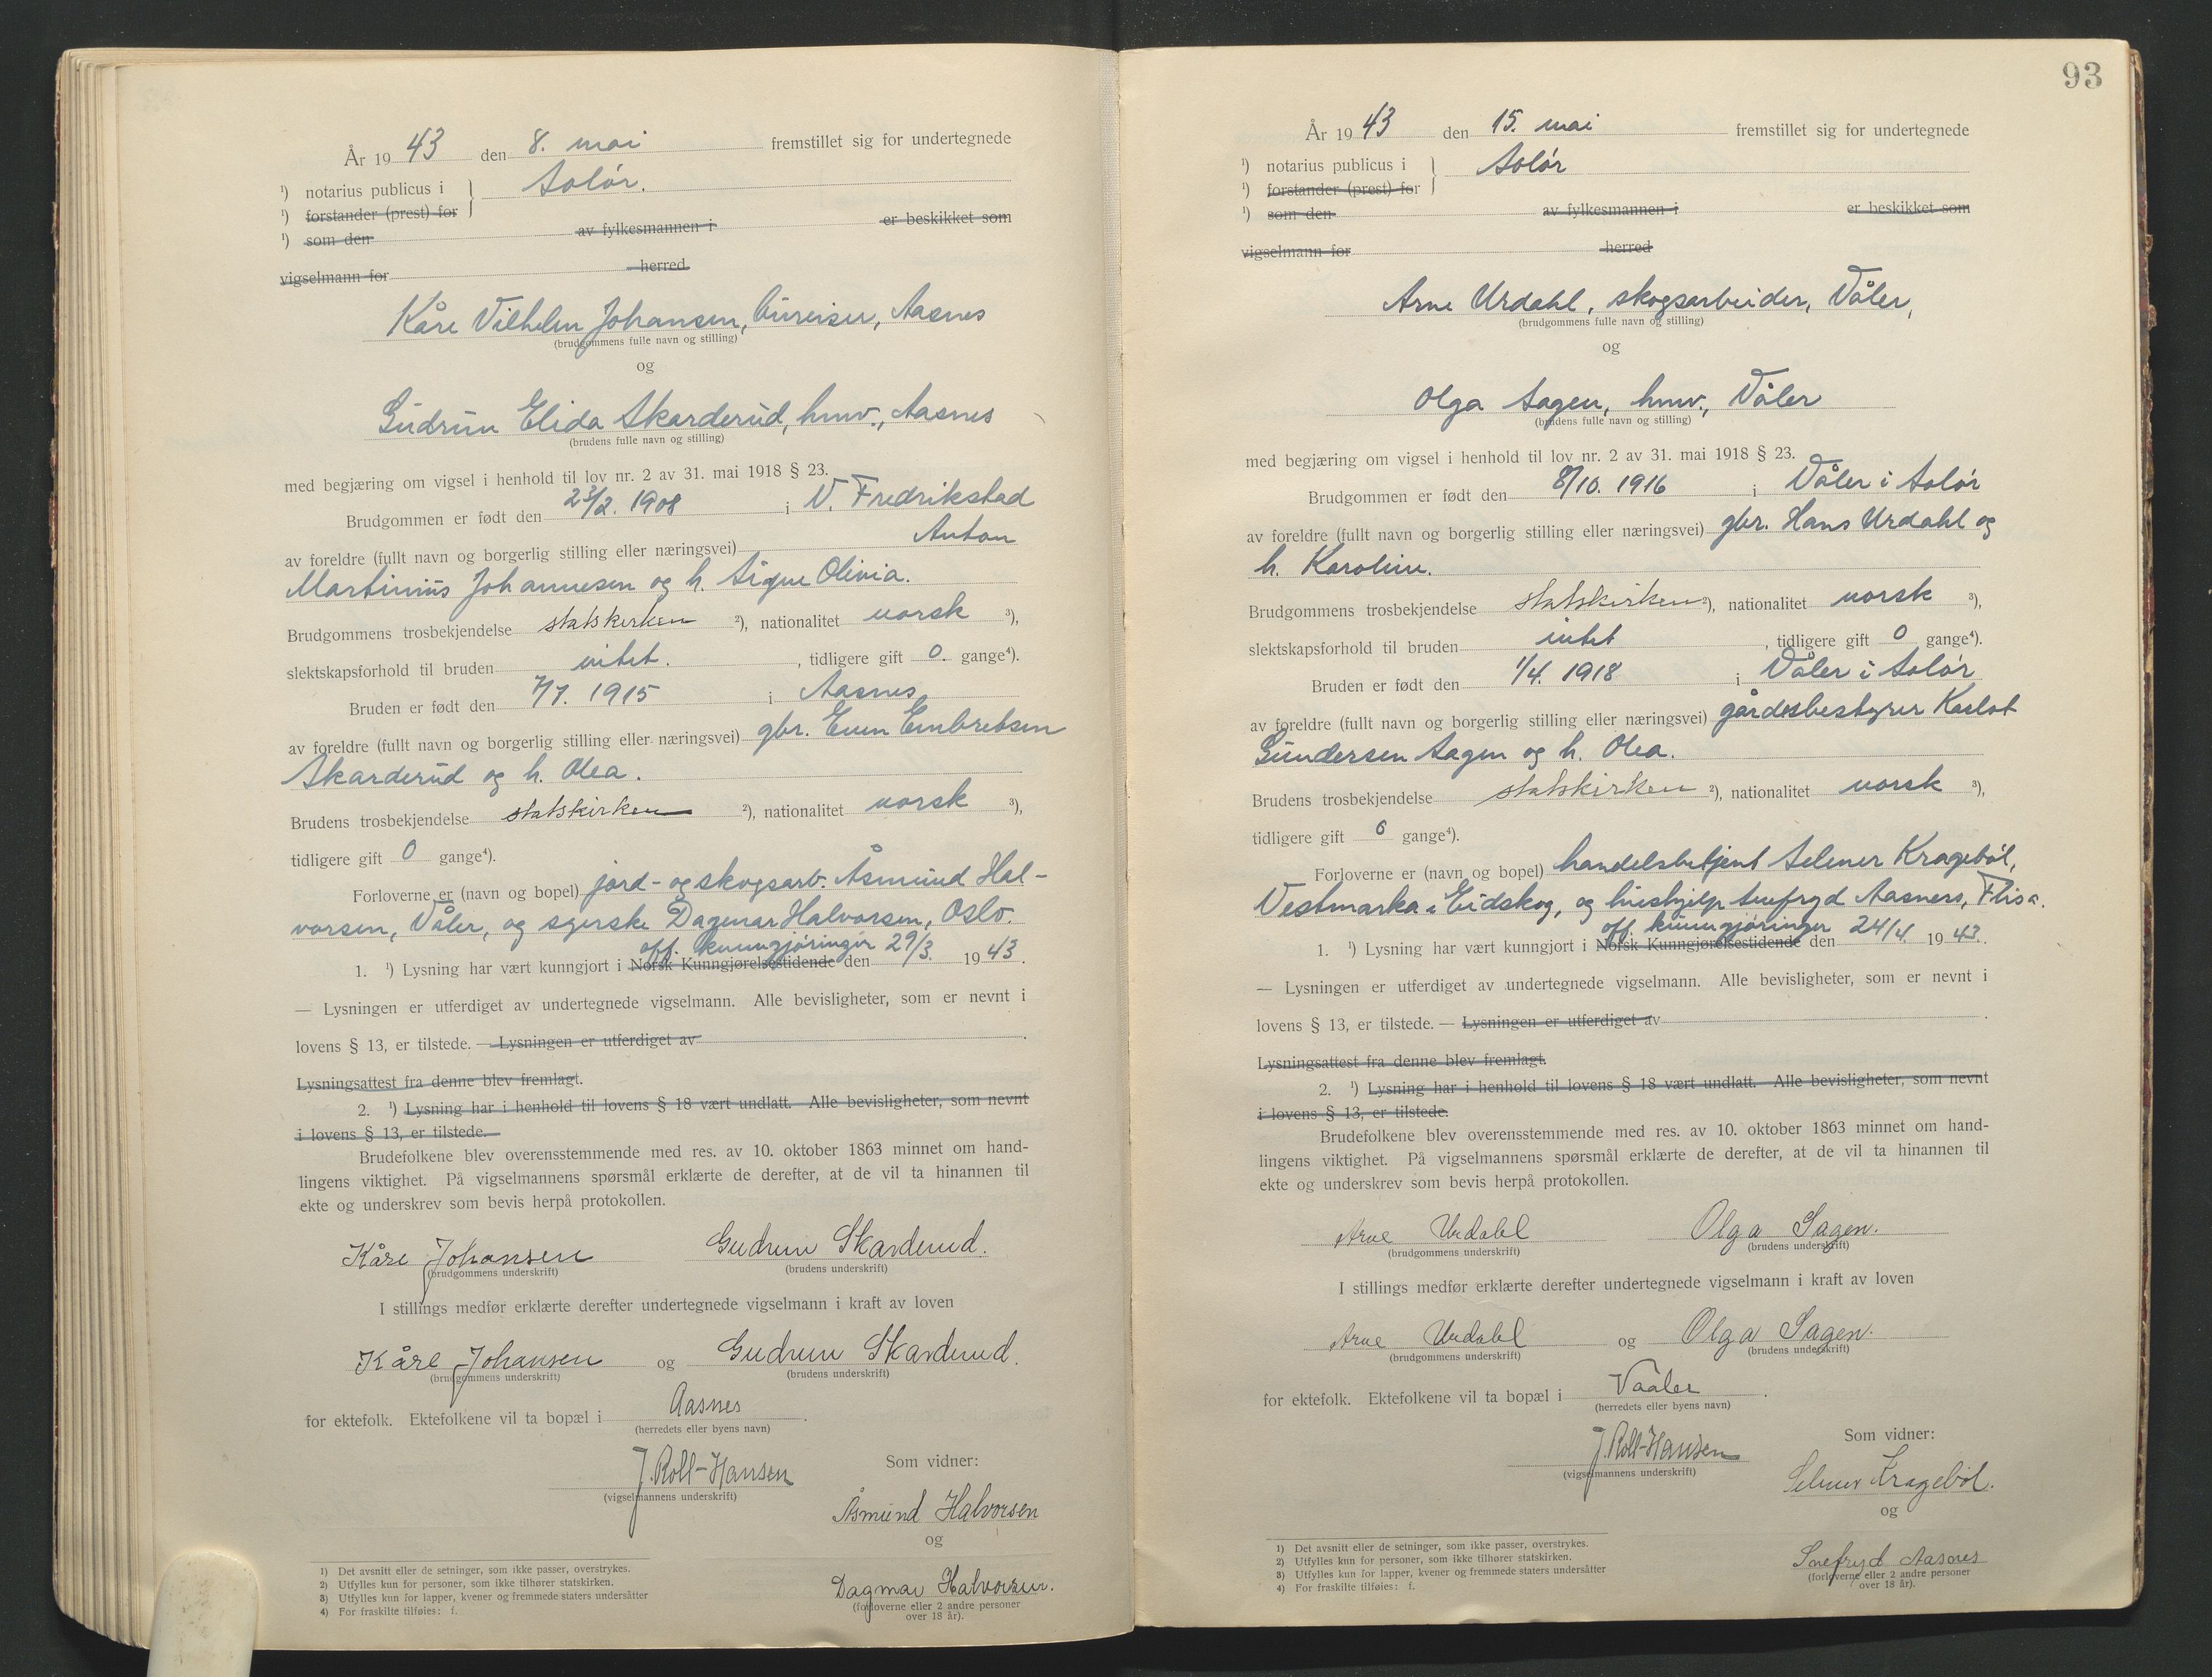 År 1943 den 8. mai fremstillet sig for undertegnede
¹) notarius publicus i } Solør.
¹) forstander (prest) for
¹) som den av fylkesmannen i er beskikket som
vigselmann for herred
Kåre Vilhelm Johansen, bureiser, Aasnes
(brudgommens fulle navn og stilling)
og
Gudrun Elida Skarderud, hmv., Aasnes
(brudens fulle navn og stilling)
med begjæring om vigsel i henhold til lov nr. 2 av 31. mai 1918 § 23.
Brudgommen er født den 23/2. 1908 i V. Fredrikstad
av foreldre (fullt navn og borgerlig stilling eller næringsvei) Anton
Martinius Johannesen og h. Signe Olivia.
Brudgommens trosbekjendelse statskirken ²), nationalitet norsk ³),
slektskapsforhold til bruden intet. , tidligere gift 0. gange⁴).
Bruden er født den 7/7. 1915 i Aasnes
av foreldre (fullt navn og borgerlig stilling eller næringsvei) gbr. Even Embretsen
Skarderud og h. Olea.
Brudens trosbekjendelse statskirken ²), nationalitet norsk ³),
tidligere gift 0 gange⁴).
Forloverne er (navn og bopel) jord- og skogsarb. Åsmund Hal-
vorsen, Våler, og syerske Dagmar Halvorsen, Oslo.
off. kunngjøringer
1. ¹) Lysning har vært kunngjort i Norsk Kunngjørelsestidende den 29/3. 1943.
— Lysningen er utferdiget av undertegnede vigselmann. Alle bevisligheter, som er nevnt i
lovens § 13, er tilstede. — Lysningen er utferdiget av .
Lysningsattest fra denne blev fremlagt.
2. ¹) Lysning har i henhold til lovens § 18 vært undlatt. Alle bevisligheter, som nevnt
i lovens § 13, er tilstede.
Brudefolkene blev overensstemmende med res. av 10. oktober 1863 minnet om hand-
lingens viktighet. På vigselmannens spørsmål erklærte de derefter, at de vil ta hinannen til
ekte og underskrev som bevis herpå protokollen.
Kåre Johansen Gudrun Skarderud.
(brudgommens underskrift) (brudens underskrift)
I stillings medfør erklærte derefter undertegnede vigselmann i kraft av loven
Kåre Johansen og Gudrun Skarderud.
(brudgommens underskrift) (brudens underskrift)
for ektefolk. Ektefolkene vil ta bopæl i Aasnes .
(herredets eller byens navn)
J. Roll-Hansen
(vigselmannens underskrift)
Som vidner:
Åsmund Halvorsen
og
Dagmar Halvorsen.
(forloverne eller 2 andre personer
over 18 år).
1) Det avsnitt eller de setninger, som ikke passer, overstrykes.
2) Utfylles kun for personer, som ikke tilhører statskirken.
3) Utfylles kun for lapper, kvener og fremmede staters undersåtter
4) For fraskilte tilføies: f.
93
År 1943 den 15. mai fremstillet sig for undertegnede
¹) notarius publicus i } Solør
¹) forstander (prest) for
¹) som den av fylkesmannen i er beskikket som
vigselmann for herred
Arne Urdahl, skogsarbeider, Våler,
(brudgommens fulle navn og stilling)
og
Olga Sagen, hmv., Våler
(brudens fulle navn og stilling)
med begjæring om vigsel i henhold til lov nr. 2 av 31. mai 1918 § 23.
Brudgommen er født den 8/10. 1916 i Våler i Solør
av foreldre (fullt navn og borgerlig stilling eller næringsvei) gbr. Hans Urdahl og
h. Karoline.
Brudgommens trosbekjendelse statskirken ²), nationalitet norsk ³),
slektskapsforhold til bruden intet , tidligere gift 0 gange⁴).
Bruden er født den 1/4. 1918 i Våler i Solør
av foreldre (fullt navn og borgerlig stilling eller næringsvei) gårdsbestyrer Kaslot
Gundersen Sagen og h. Olea.
Brudens trosbekjendelse statskirken ²), nationalitet norsk ³),
tidligere gift 0 gange⁴).
Forloverne er (navn og bopel) handelsbetjent Selmer Kragebøl,
Vestmarka i Eidskog, og hushjelp Snefryd Aasnes, Flisa.
off. kunngjøringer
1. ¹) Lysning har vært kunngjort i Norsk Kunngjørelsestidende den 24/4. 1943.
— Lysningen er utferdiget av undertegnede vigselmann. Alle bevisligheter, som er nevnt i
lovens § 13, er tilstede. — Lysningen er utferdiget av .
Lysningsattest fra denne blev fremlagt.
2. ¹) Lysning har i henhold til lovens § 18 vært undlatt. Alle bevisligheter, som nevnt
i lovens § 13, er tilstede.
Brudefolkene blev overensstemmende med res. av 10. oktober 1863 minnet om hand-
lingens viktighet. På vigselmannens spørsmål erklærte de derefter, at de vil ta hinannen til
ekte og underskrev som bevis herpå protokollen.
Arne Urdahl Olga Sagen.
(brudgommens underskrift) (brudens underskrift)
I stillings medfør erklærte derefter undertegnede vigselmann i kraft av loven
Arne Urdahl og Olga Sagen.
(brudgommens underskrift) (brudens underskrift)
for ektefolk. Ektefolkene vil ta bopæl i Vaaler .
(herredets eller byens navn)
J. Roll-Hansen
(vigselmannens underskrift)
Som vidner:
Selmer Kragebøl.
og
Snefryd Aasnes
(forloverne eller 2 andre personer
over 18 år).
1) Det avsnitt eller de setninger, som ikke passer, overstrykes.
2) Utfylles kun for personer, som ikke tilhører statskirken.
3) Utfylles kun for lapper, kvener og fremmede staters undersåtter
4) For fraskilte tilføies: f.